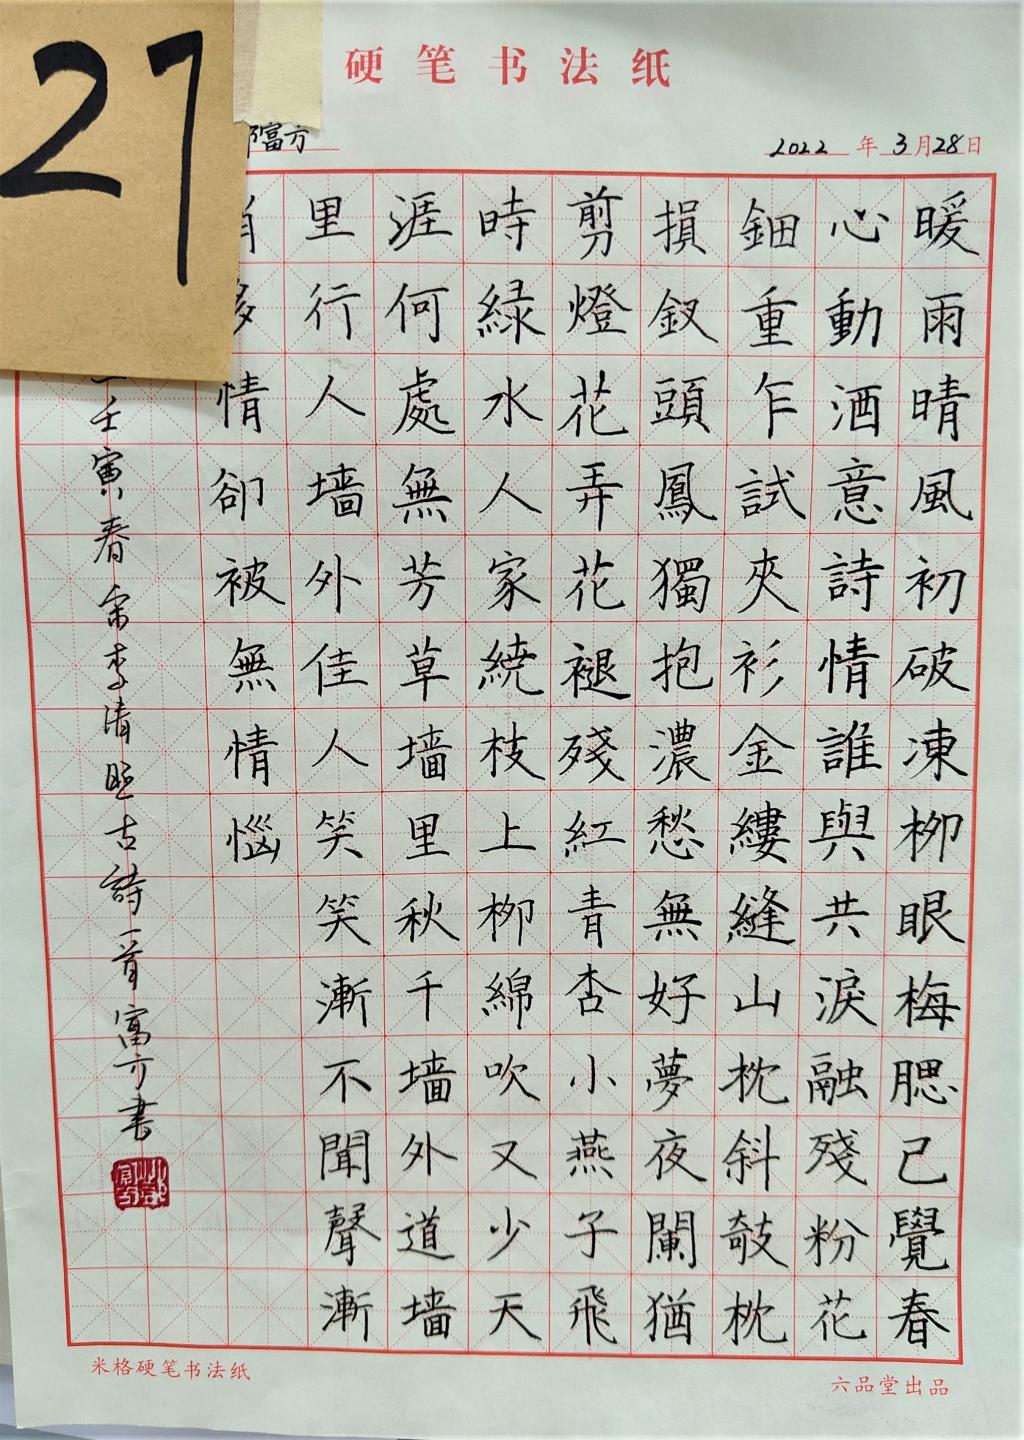 27
硬笔书法纸
富方
2022年3月28日
暖雨晴風初破凍柳眼梅腮己覺春
心動酒意詩情誰與共淚融殘粉花
鈿重乍試夾衫金縷縫山枕斜敧枕
損釵頭鳳獨抱濃愁無好夢夜闌猶
剪燈花弄花褪殘紅青杏小燕子飛
時綠水人家繞枝上柳綿吹又少天
涯何處無芳草墙里秋千墙外道墙
里行人墙外佳人笑笑漸不聞聲漸
情卻被無情惱
壬寅春宋李清照古詩一首富方書
米格硬笔书法纸
六品堂出品